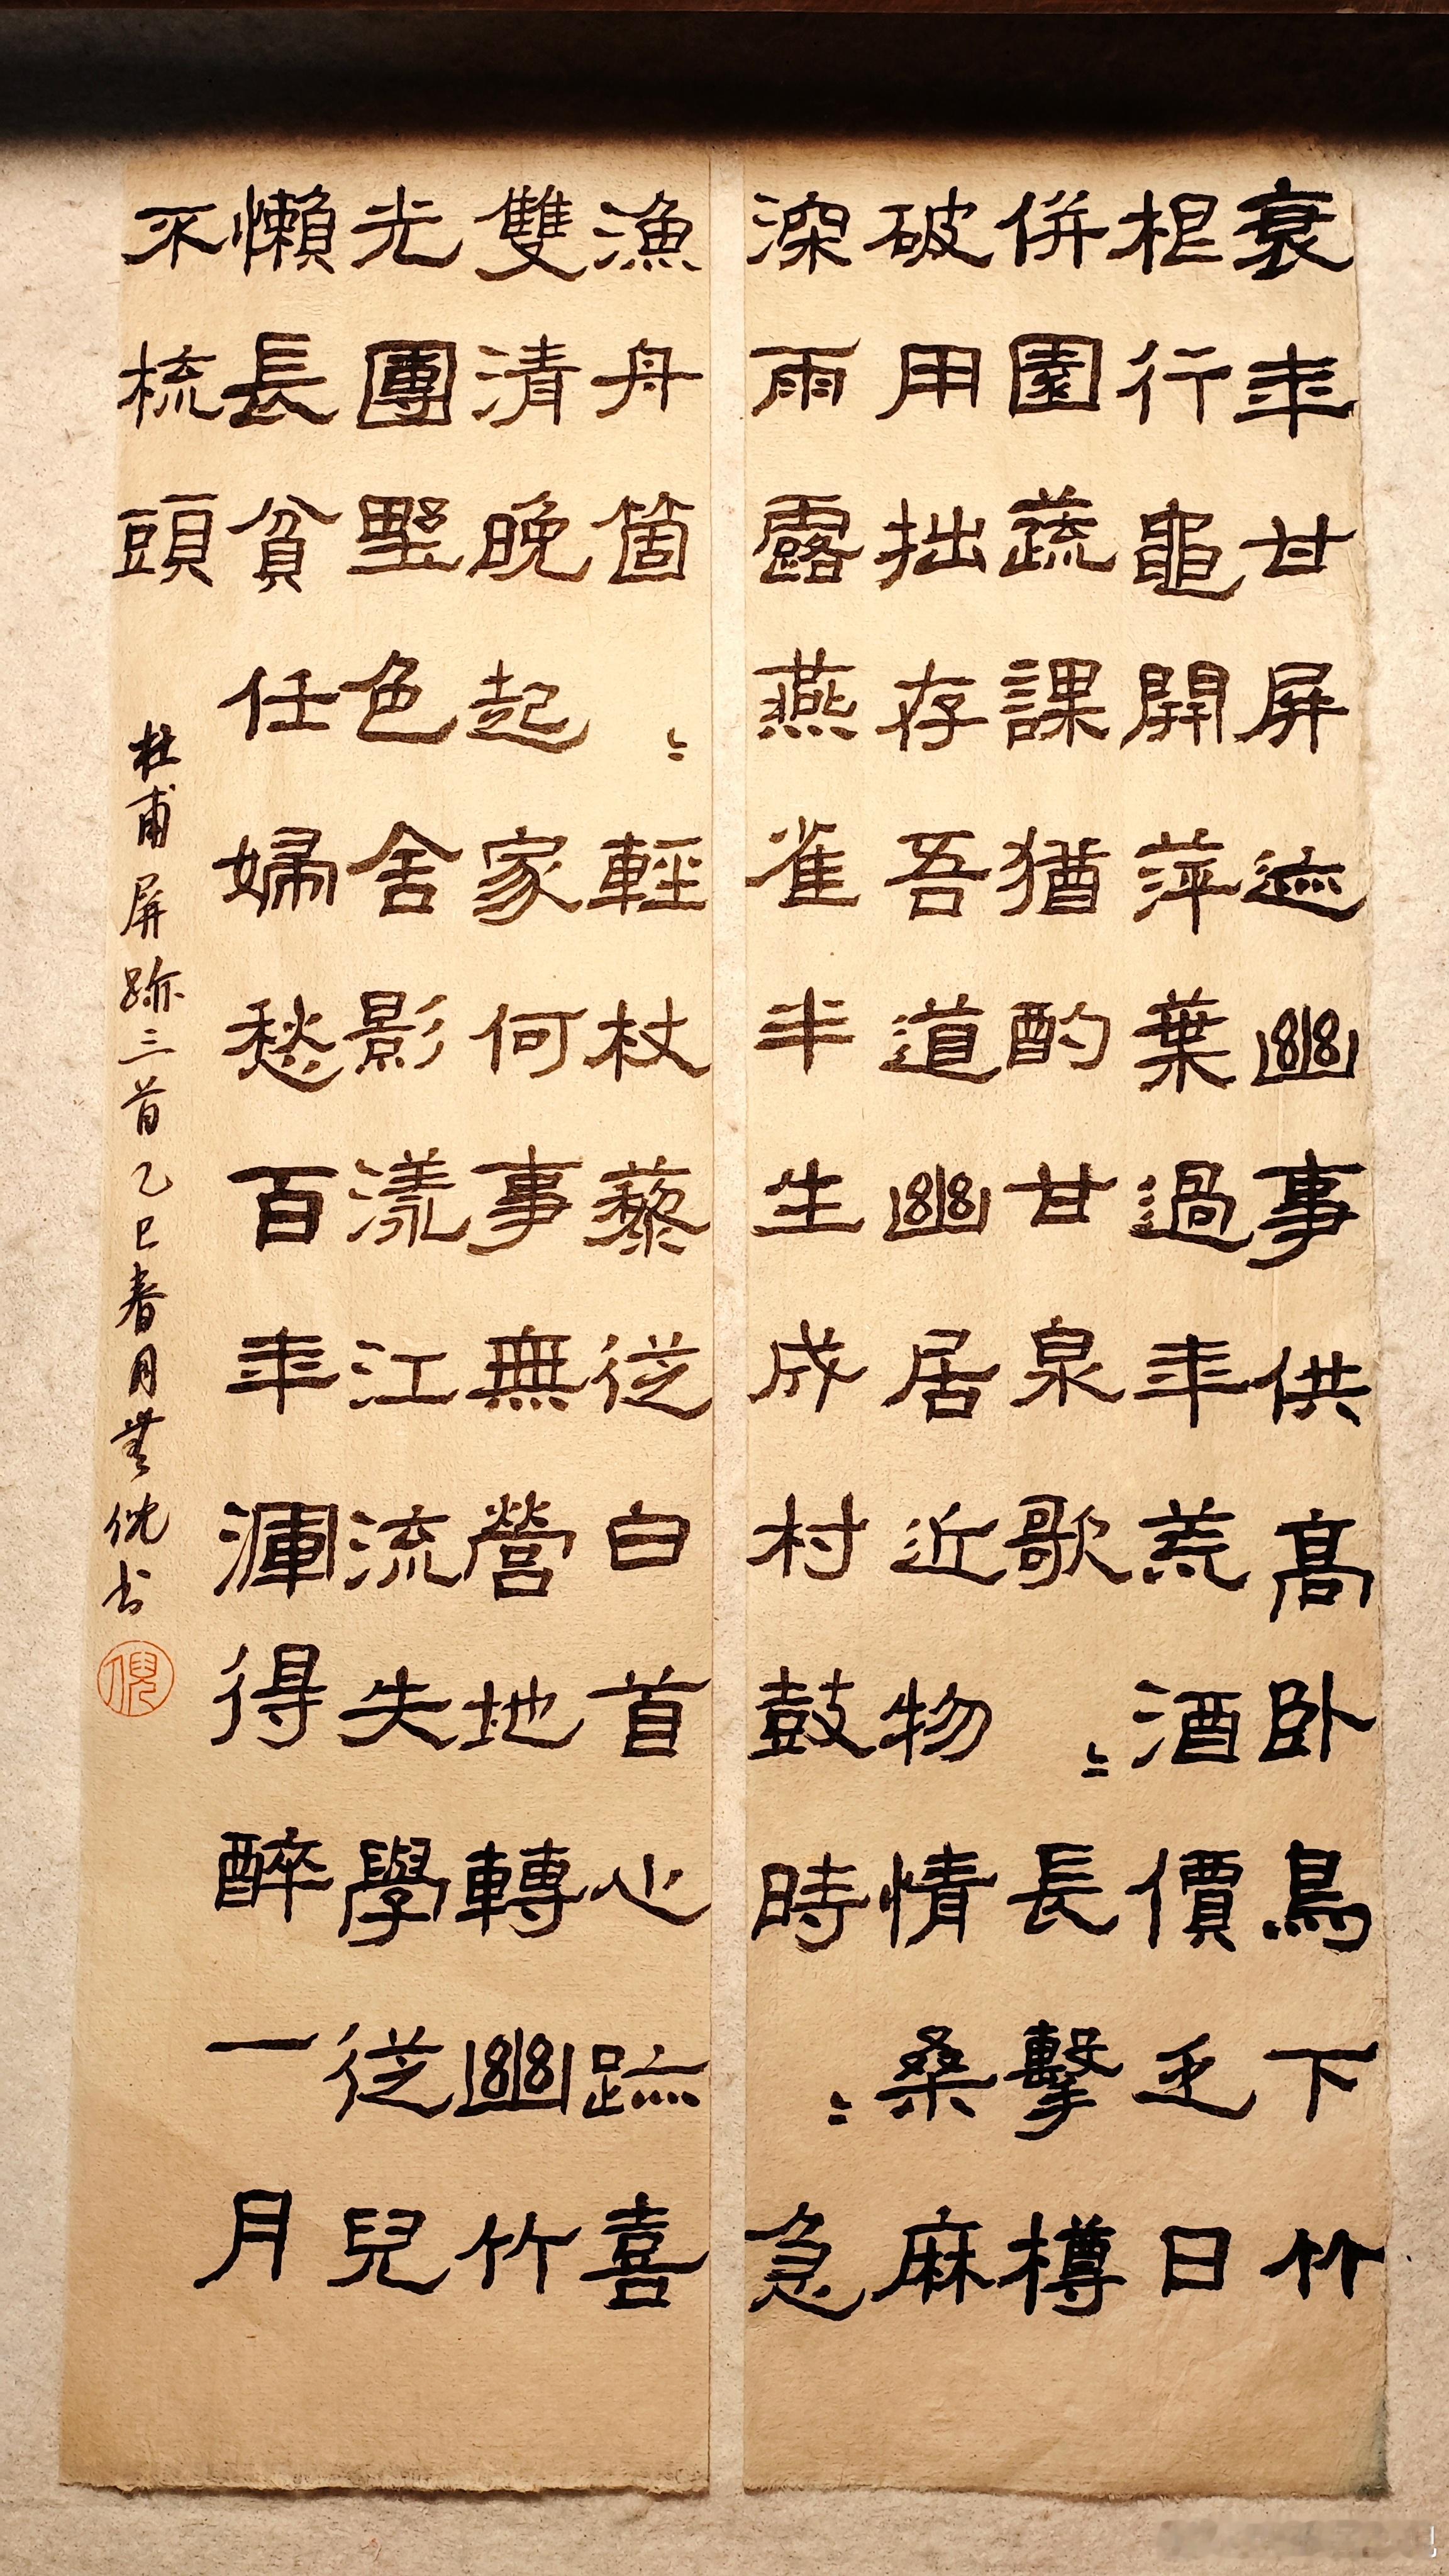 衰年甘屏迹幽事供高卧鳥下竹
根行龜開萍葉過年荒酒價乏日
併園蔬課猶酌甘泉歌〻長擊樽
破用拙存吾道幽居近物情桑麻
深雨露燕雀半生成村鼓時〻急
漁舟箇〻輕杖藜從白首心跡喜
雙清晚起家何事無營地轉幽竹
光團野色舍影漾江流失學從兒
懶長貧任婦愁百年渾得醉一月
不梳頭
杜甫屏跡三首乙巳春月無倪书
倪